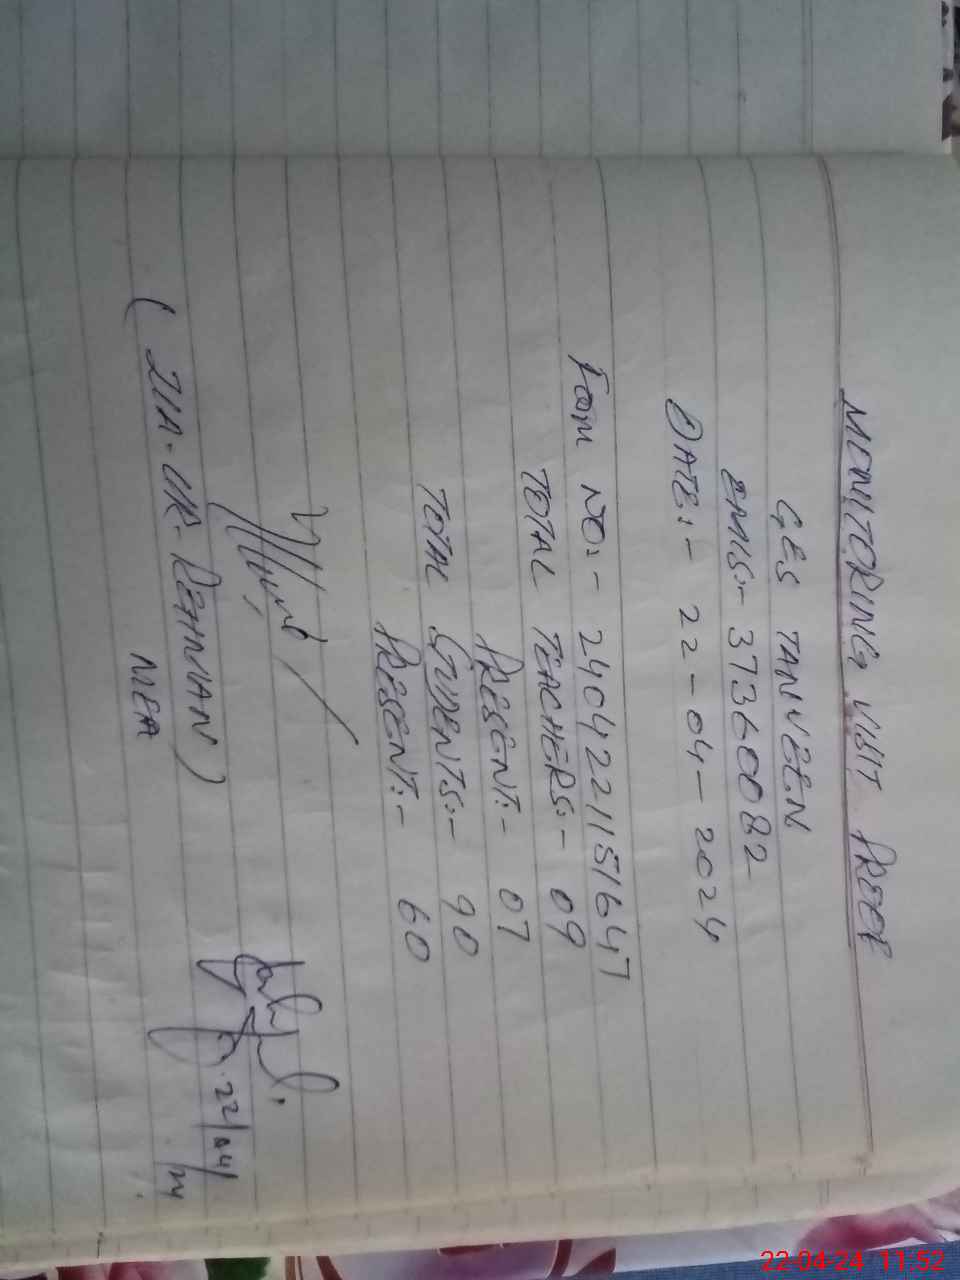 MONITORING VISIT PROOF
GES TANVEEN
EMIS:- 37360082
DATE:- 22-04-2024
FORM NO:- 24042211151647
TOTAL TEACHERS:- 09
PRESENT:- 07
TOTAL STUDENTS:- 90
PRESENT:- 60
(ZIA-UR-REHMAN)
MEA
22/04/
22-04-24 11:52